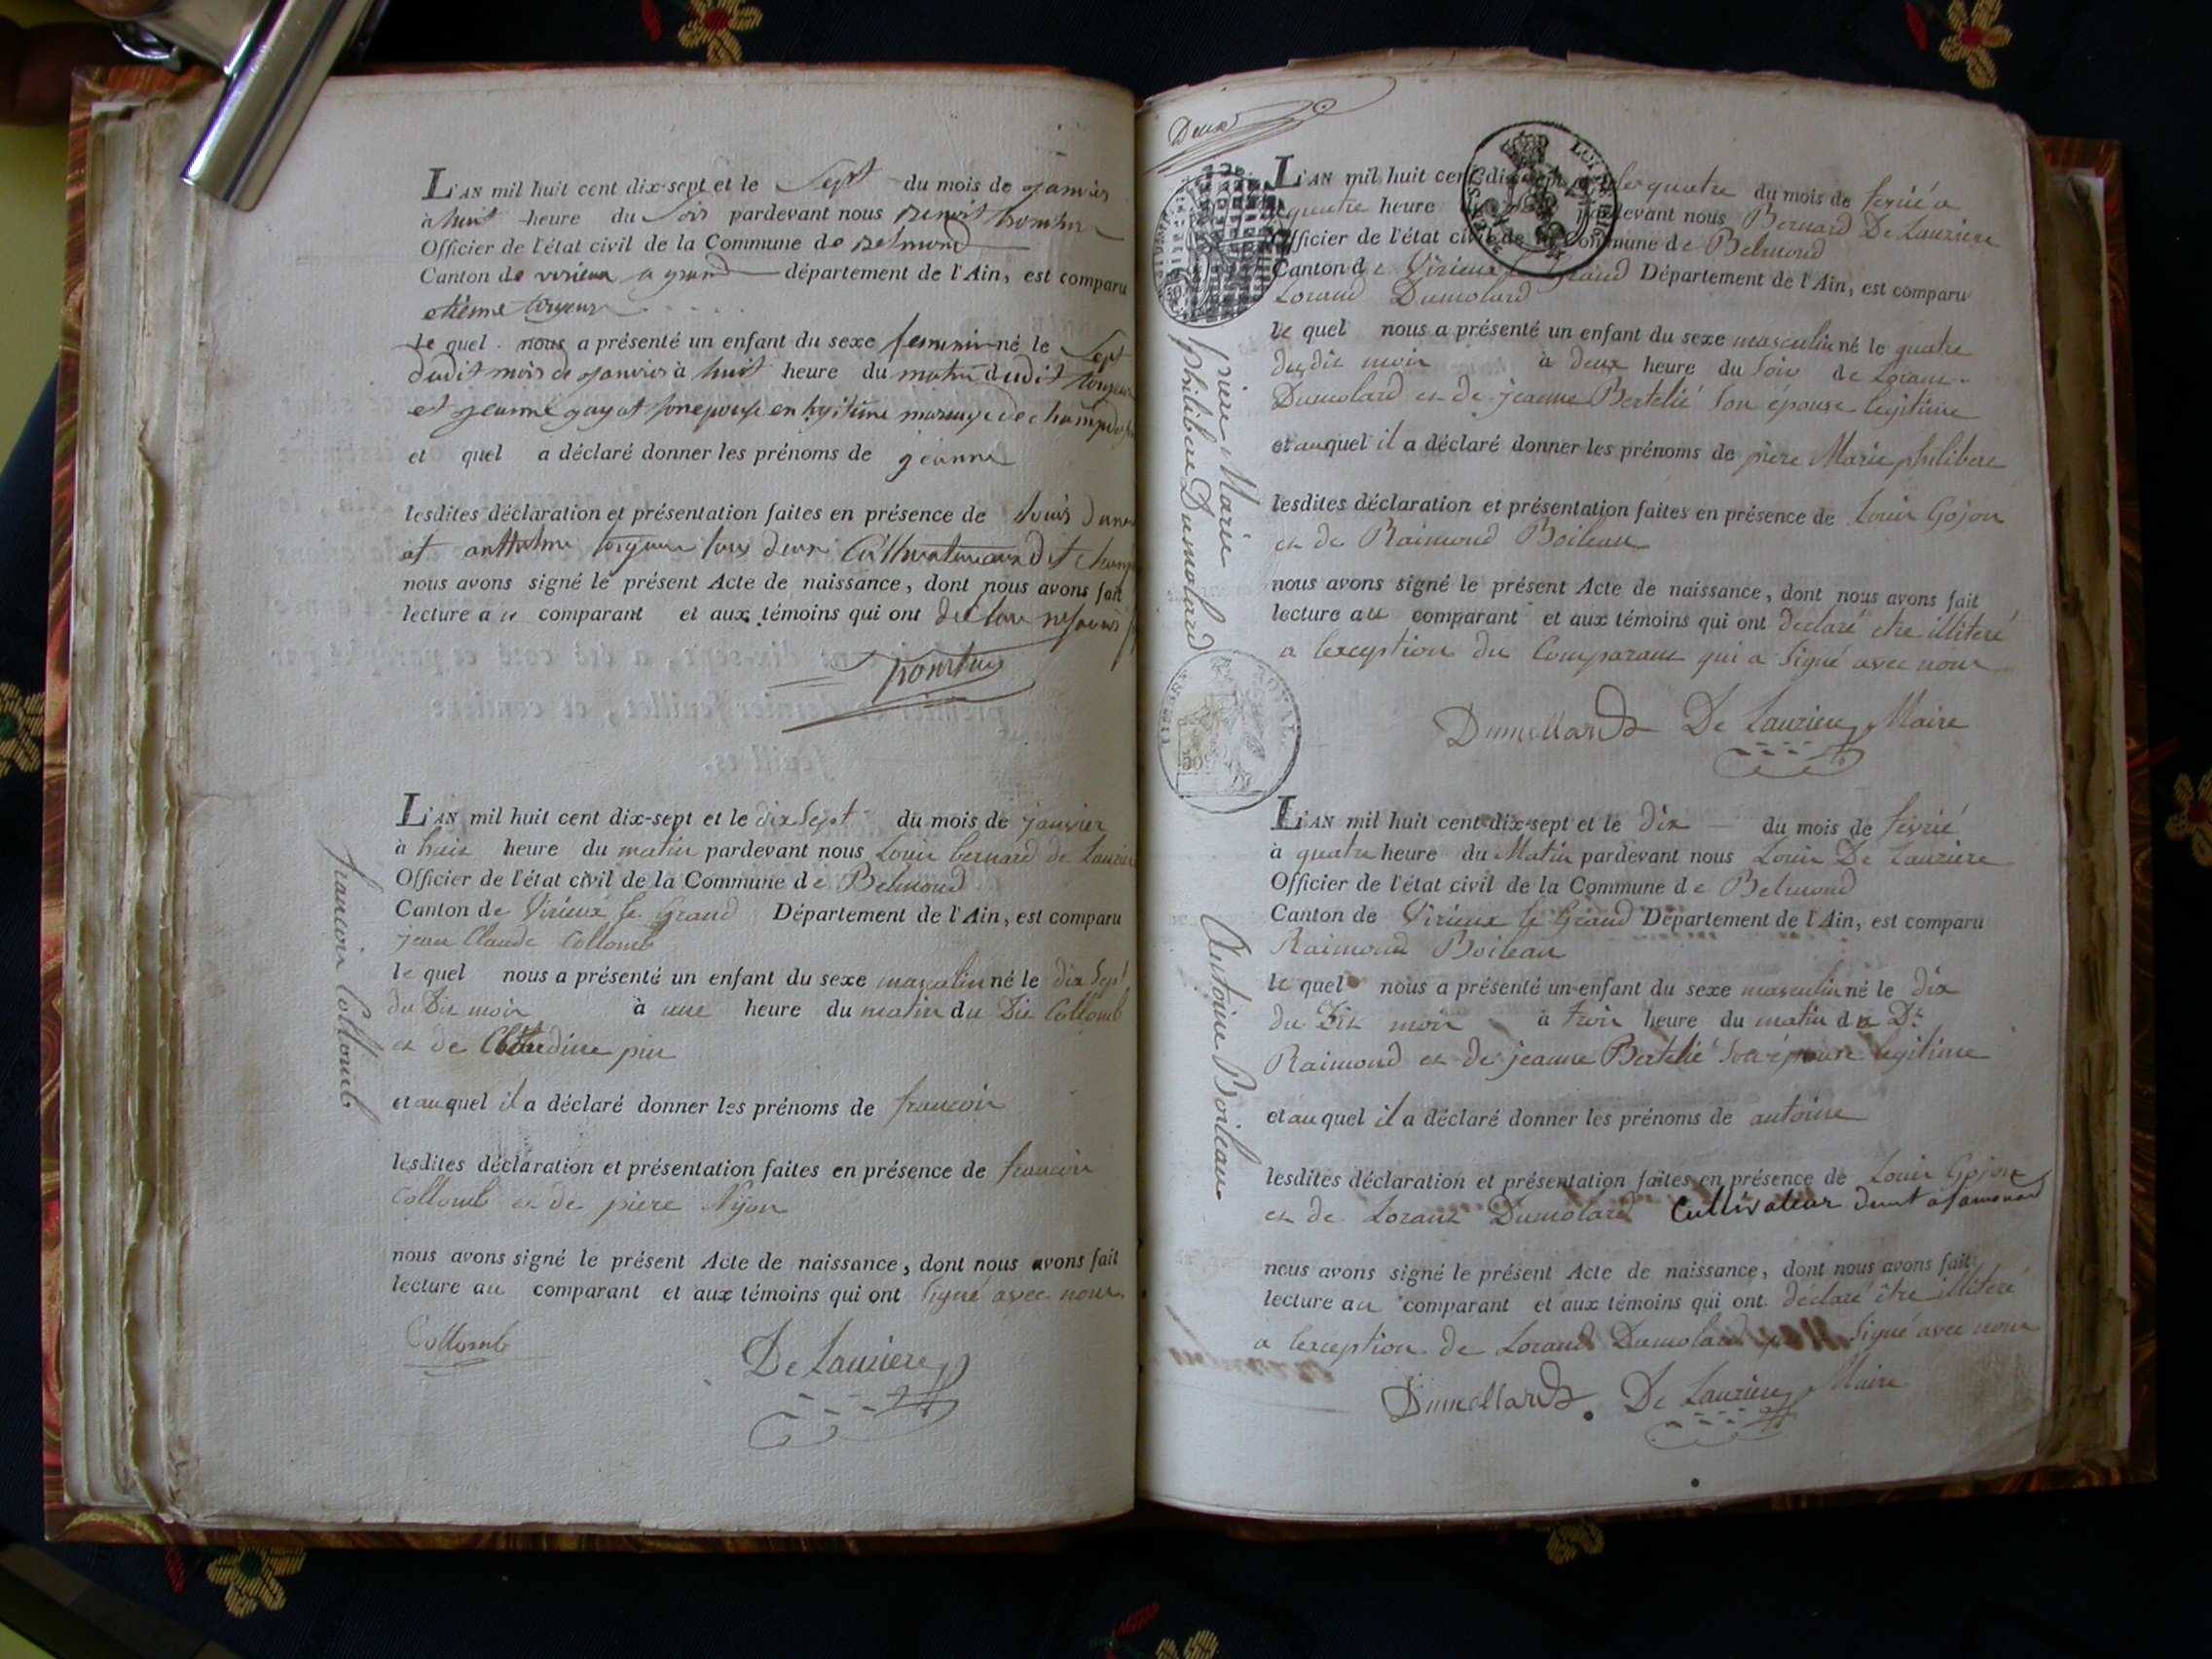 L'AN mil huit cent dix-sept et le Sept du mois de janvier
à huit heure du soir pardevant nous Benoit
Officier de l'état civil de la Commune de Belmond
Canton de virieux a grand département de l'Ain, est comparu
etienne
le quel nous a présenté un enfant du sexe feminin né le Sept
dudit mois de janvier à huit heure du matin dudit
et jeanne gayat son epouse en legitime mariage de
et quel a déclaré donner les prénoms de jeanne
lesdites déclaration et présentation faites en présence de Louis
et anthelme tous deux Cultivateur audit
nous avons signé le présent Acte de naissance, dont nous avons fait
lecture au comparant et aux témoins qui ont declare ne savoir
L'AN mil huit cent dix-sept et le dix Sept du mois de janvier
à huit heure du matin pardevant nous Louis bernard de Lauzier
Officier de l'état civil de la Commune de Belmond
Canton de Virieux le Grand Département de l'Ain, est comparu
jean Claude Collomb
le quel nous a présenté un enfant du sexe masculin né le dix Sept
du Dit mois à une heure du matin du Dit Collomb
et de Claudine pin
et au quel il a déclaré donner les prénoms de francois
lesdites déclaration et présentation faites en présence de francois
Collomb et de piere Nyon
nous avons signé le présent Acte de naissance, dont nous avons fait
lecture au comparant et aux témoins qui ont Signé avec nous
Collomb De Lauziere
francois Collomb
Deux
L'AN mil huit cent dix-sept et le quatre du mois de fevrié a
quatre heure pardevant nous Bernard De Lauziere
Officier de l'état civil de la Commune de Belmond
Canton de Virieux le Grand Département de l'Ain, est comparu
Lorand Dumolard
le quel nous a présenté un enfant du sexe masculin né le quatre
du dit mois à deux heure du Soir de Loran
Dumolard et de jeanne Bertelié Son épouse legitime
et au quel il a déclaré donner les prénoms de piere Marie philibert
lesdites déclaration et présentation faites en présence de Louis Gojon
et de Raimond Boileau
nous avons signé le présent Acte de naissance, dont nous avons fait
lecture au comparant et aux témoins qui ont déclaré etre illiteré
a lexception du Comparant qui a Signé avec nous
Dumollard De Lauziere Maire
piere Marie
philibert Dumolard
L'AN mil huit cent dix-sept et le Dix du mois de fevrié
à quatre heure du Matin pardevant nous Louis De Lauziere
Officier de l'état civil de la Commune de Belmond
Canton de Virieux le Grand Département de l'Ain, est comparu
Raimond Boileau
le quel nous a présenté un enfant du sexe masculin né le dix
du Dit mois à trois heure du matin du Dt
Raimond et de jeanne Bertelié Son épouse legitime
et au quel il a déclaré donner les prénoms de antoine
lesdites déclaration et présentation faites en présence de Louis Gojon
et de Lorant Dumolard Cultivateur
nous avons signé le présent Acte de naissance, dont nous avons fait
lecture au comparant et aux témoins qui ont déclaré être illiteré
a lexception de Lorand Dumolard Signé avec nous
Dumollard De Lauziere Maire
Antoine Boileau